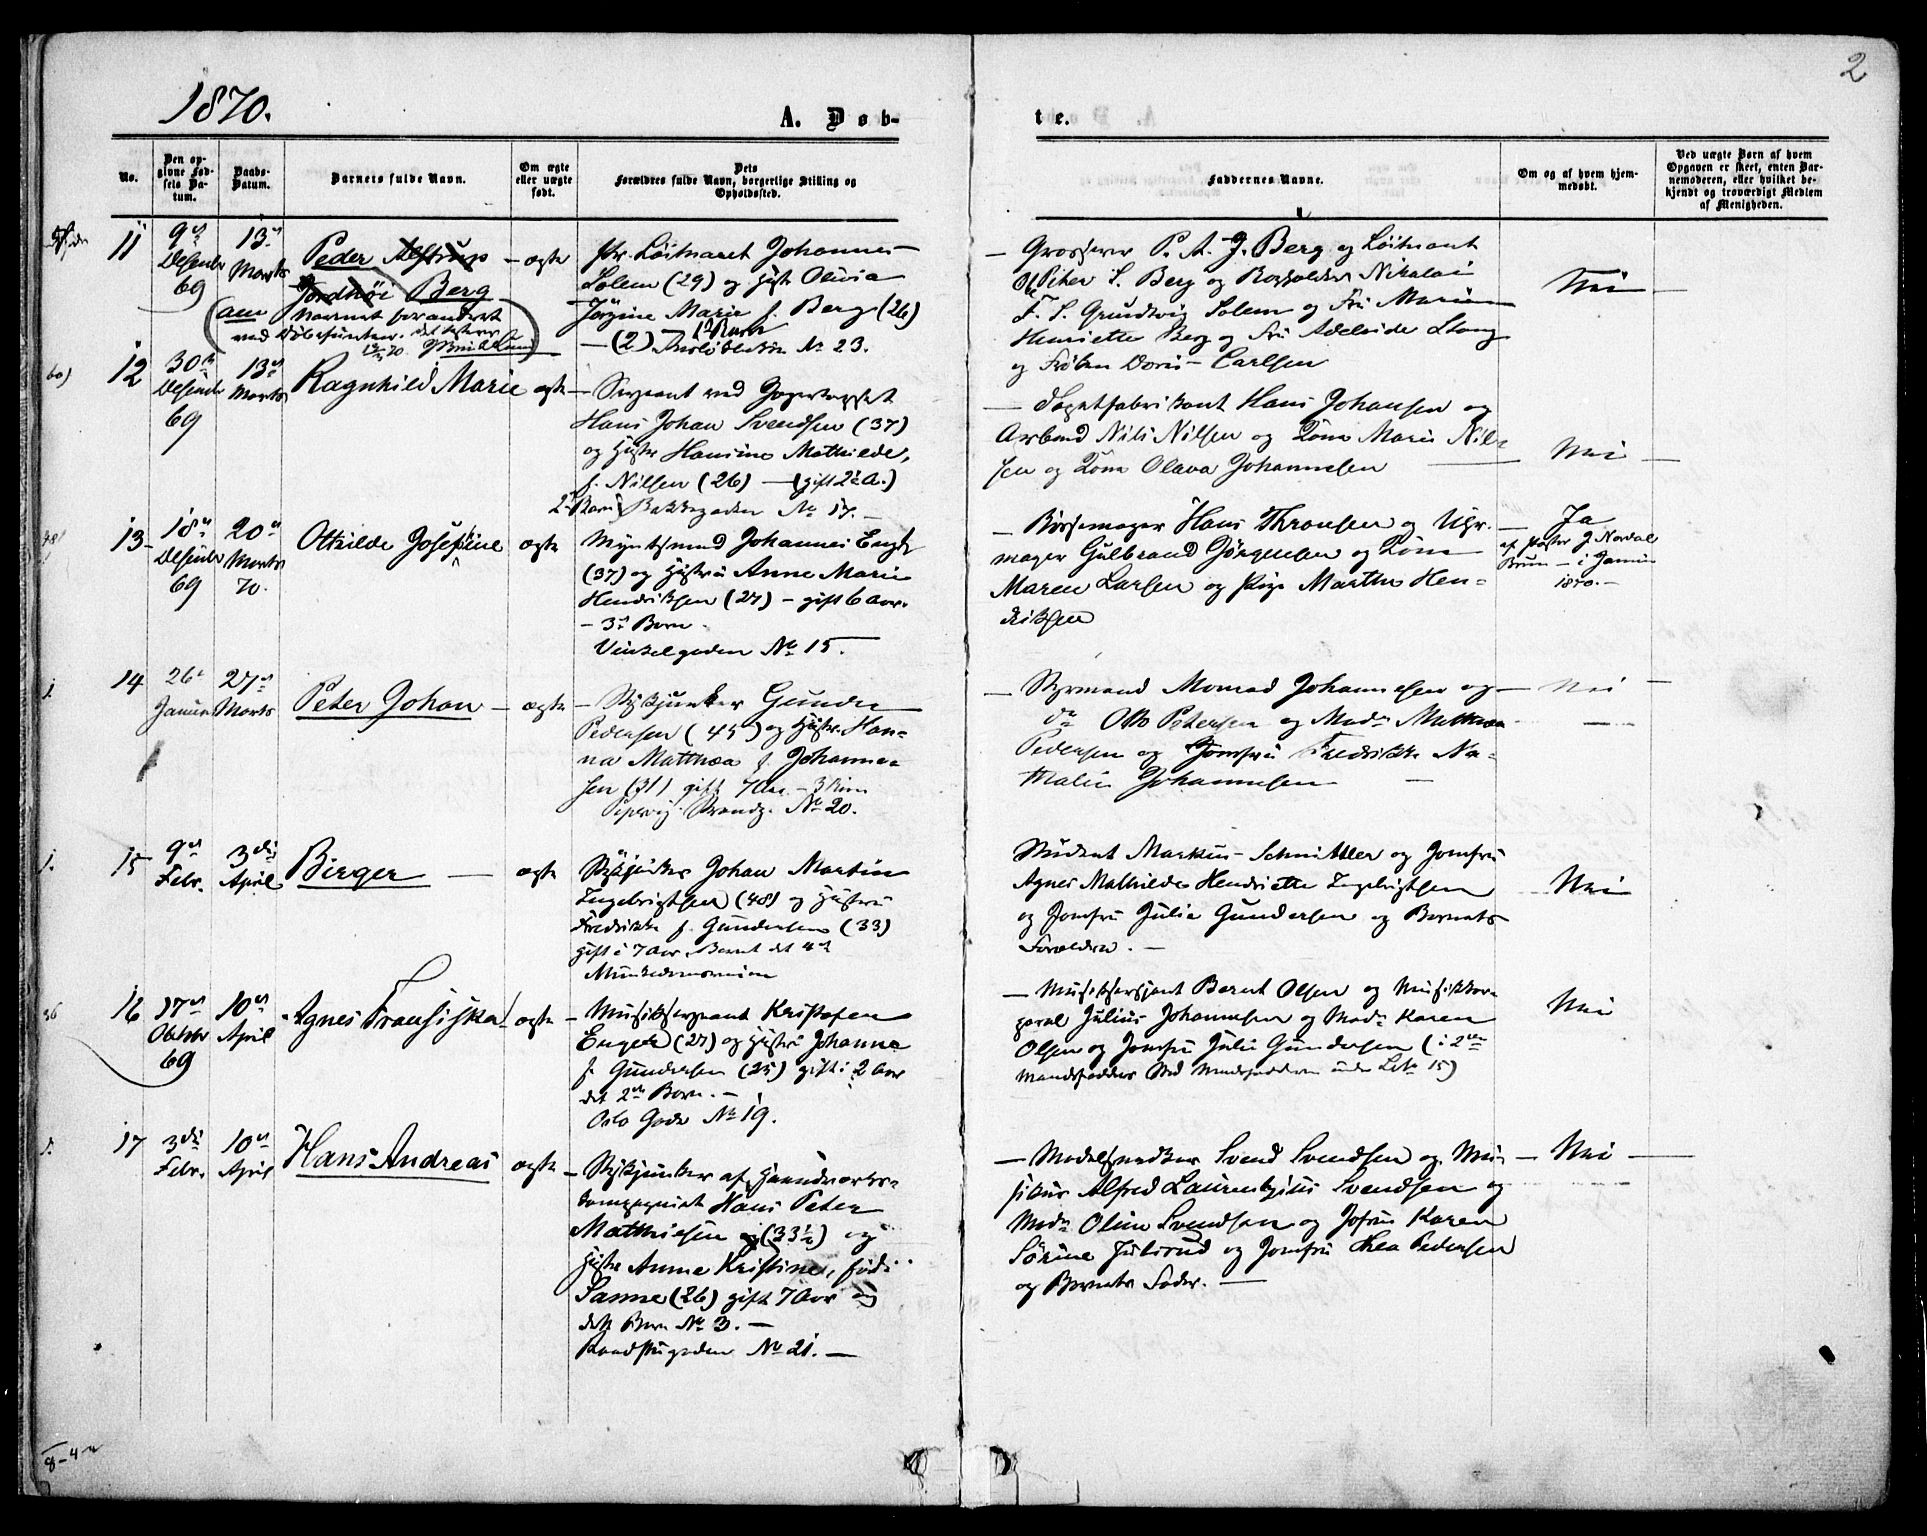 1870.
2
A. Døb-
te.
No.
Den op-
givne Fød-
sels Da-
tum.
Daabs-
Datum.
Barnets fulde Navn.
Om ægte
eller uægte
født.
Dets
Forældres fulde Navn, borgerlige Stilling og
Opholdssted.
Faddernes Navne.
Om og af hvem hjem-
medøbt.
Ved uægte Børn af hvem
Opgaven er skeet, enten Bar-
nemoderen, eller hvilket be-
kjendt og troværdigt Medlem
af Menigheden.
11
9
Desembr
69
13
Marts
Peder Alstrup
Berg
Navnet forandret
ved Døbefunten.
ægte
Pr. Løitnant Johannes
Solem (29) og Hustr Olivia
Jørgine Marie f. Berg (26)
(2) No 23.
— Grosserer P. A. J. Berg og Löitnant
Peter S. Berg og Nikolai
F. S. Grundtvig Solem og Fru Marie
Henriette Berg og Fru Adelaide Stang
og Frøken Doris Carlsen
Nei
12
30
Desembr
69
13
Marts
Ragnhild Marie
ægte
— Sergeant ved Jægerkorpset
Hans Johan Svendsen (37)
og Hustr Hansine Mathilde,
f. Nilsen (26) — (gift 2 A.)
2 Barn Bakkegaden No 17. —
— Hans Johansen og
Arbmd Nils Nilsen og Kone Maren Nil-
sen og Kone Olava Johannesen
Nei
13
18
Desembr
69
20
Marts
70.
Othilde Josefine
ægte
Myntsmed Johannes Enger
(37) og Hustru Anne Marie
Hendriksen (27) — gift 6 Aar.
— 3 Barn
Vinkelgaden No 15.
— Børsemager Hans Thronsen og Uhr-
mager Gulbrand Jørgensen og Kone
Maren Larsen og Pige Marthe Hen-
driksen
Ja
af Pastor J. Nordal
Brun — i Januar
1870. —
14
26
Januar
27
Marts
Peter Johan
— ægte
— Stykjunker Gunder
Pedersen (45) og Hustr. Han-
na Mathea f. Johanne-
sen (31) gift 7 Aar — 3 Barn
Pipervig. Strandg. No 20.
— Styrmand Monrad Johannesen og
do Otto Petersen og Mad. Mathea
Pedersen og Jomfru Fredrikke Na-
thalie Johannesen
Nei
15
9
Febr.
3die
April
Birger
ægte
Stykjunker Johan Martin
Engebrigtsen (48) og Hustru
Fredrikke f. Gundersen (33)
gift i 7 Aar. Barnet det 4de
Student Markus Schnitler og Jomfru
Agnes Mathilde Henriette Engebrigtsen
og Jomfru Julie Gundersen og Barnets
Forældre. —
Nei
16
17
Oktobr
69
10
April
Agnes Fransiska
ægte
— Musiksergeant Kristofer
Enger (27) og Hustru Johanne
f. Gundersen (25) gift i 2 Aar
det 2de Barn. —
Oslo Gade No 19.
— Musiksersjent Bernt Olsen og Musikkor-
poral Julius Johannesen og Mad. Karen
Olsen og Jomfru Julie Gundersen
Nei
17
3die
Febr.
10
April
Hans Andreas
ægte
— Stykjunker af Haandværks-
kompagniet Hans Peter
Matthiesen (33½) og
Hustr Anne Kristine, født
Sanne (26) gift 7 Aar og
dette Barn No 3. —
No 21. —
— Modelsnedker Svend Svendsen og Mu-
sikus Alfred Laurentzius Svendsen og
Mad. Oline Svendsen og Jofru Karen
Sørine Julsrud og Jomfru Thea Pedersen
og Barnets Fader. —
Nei
8-4